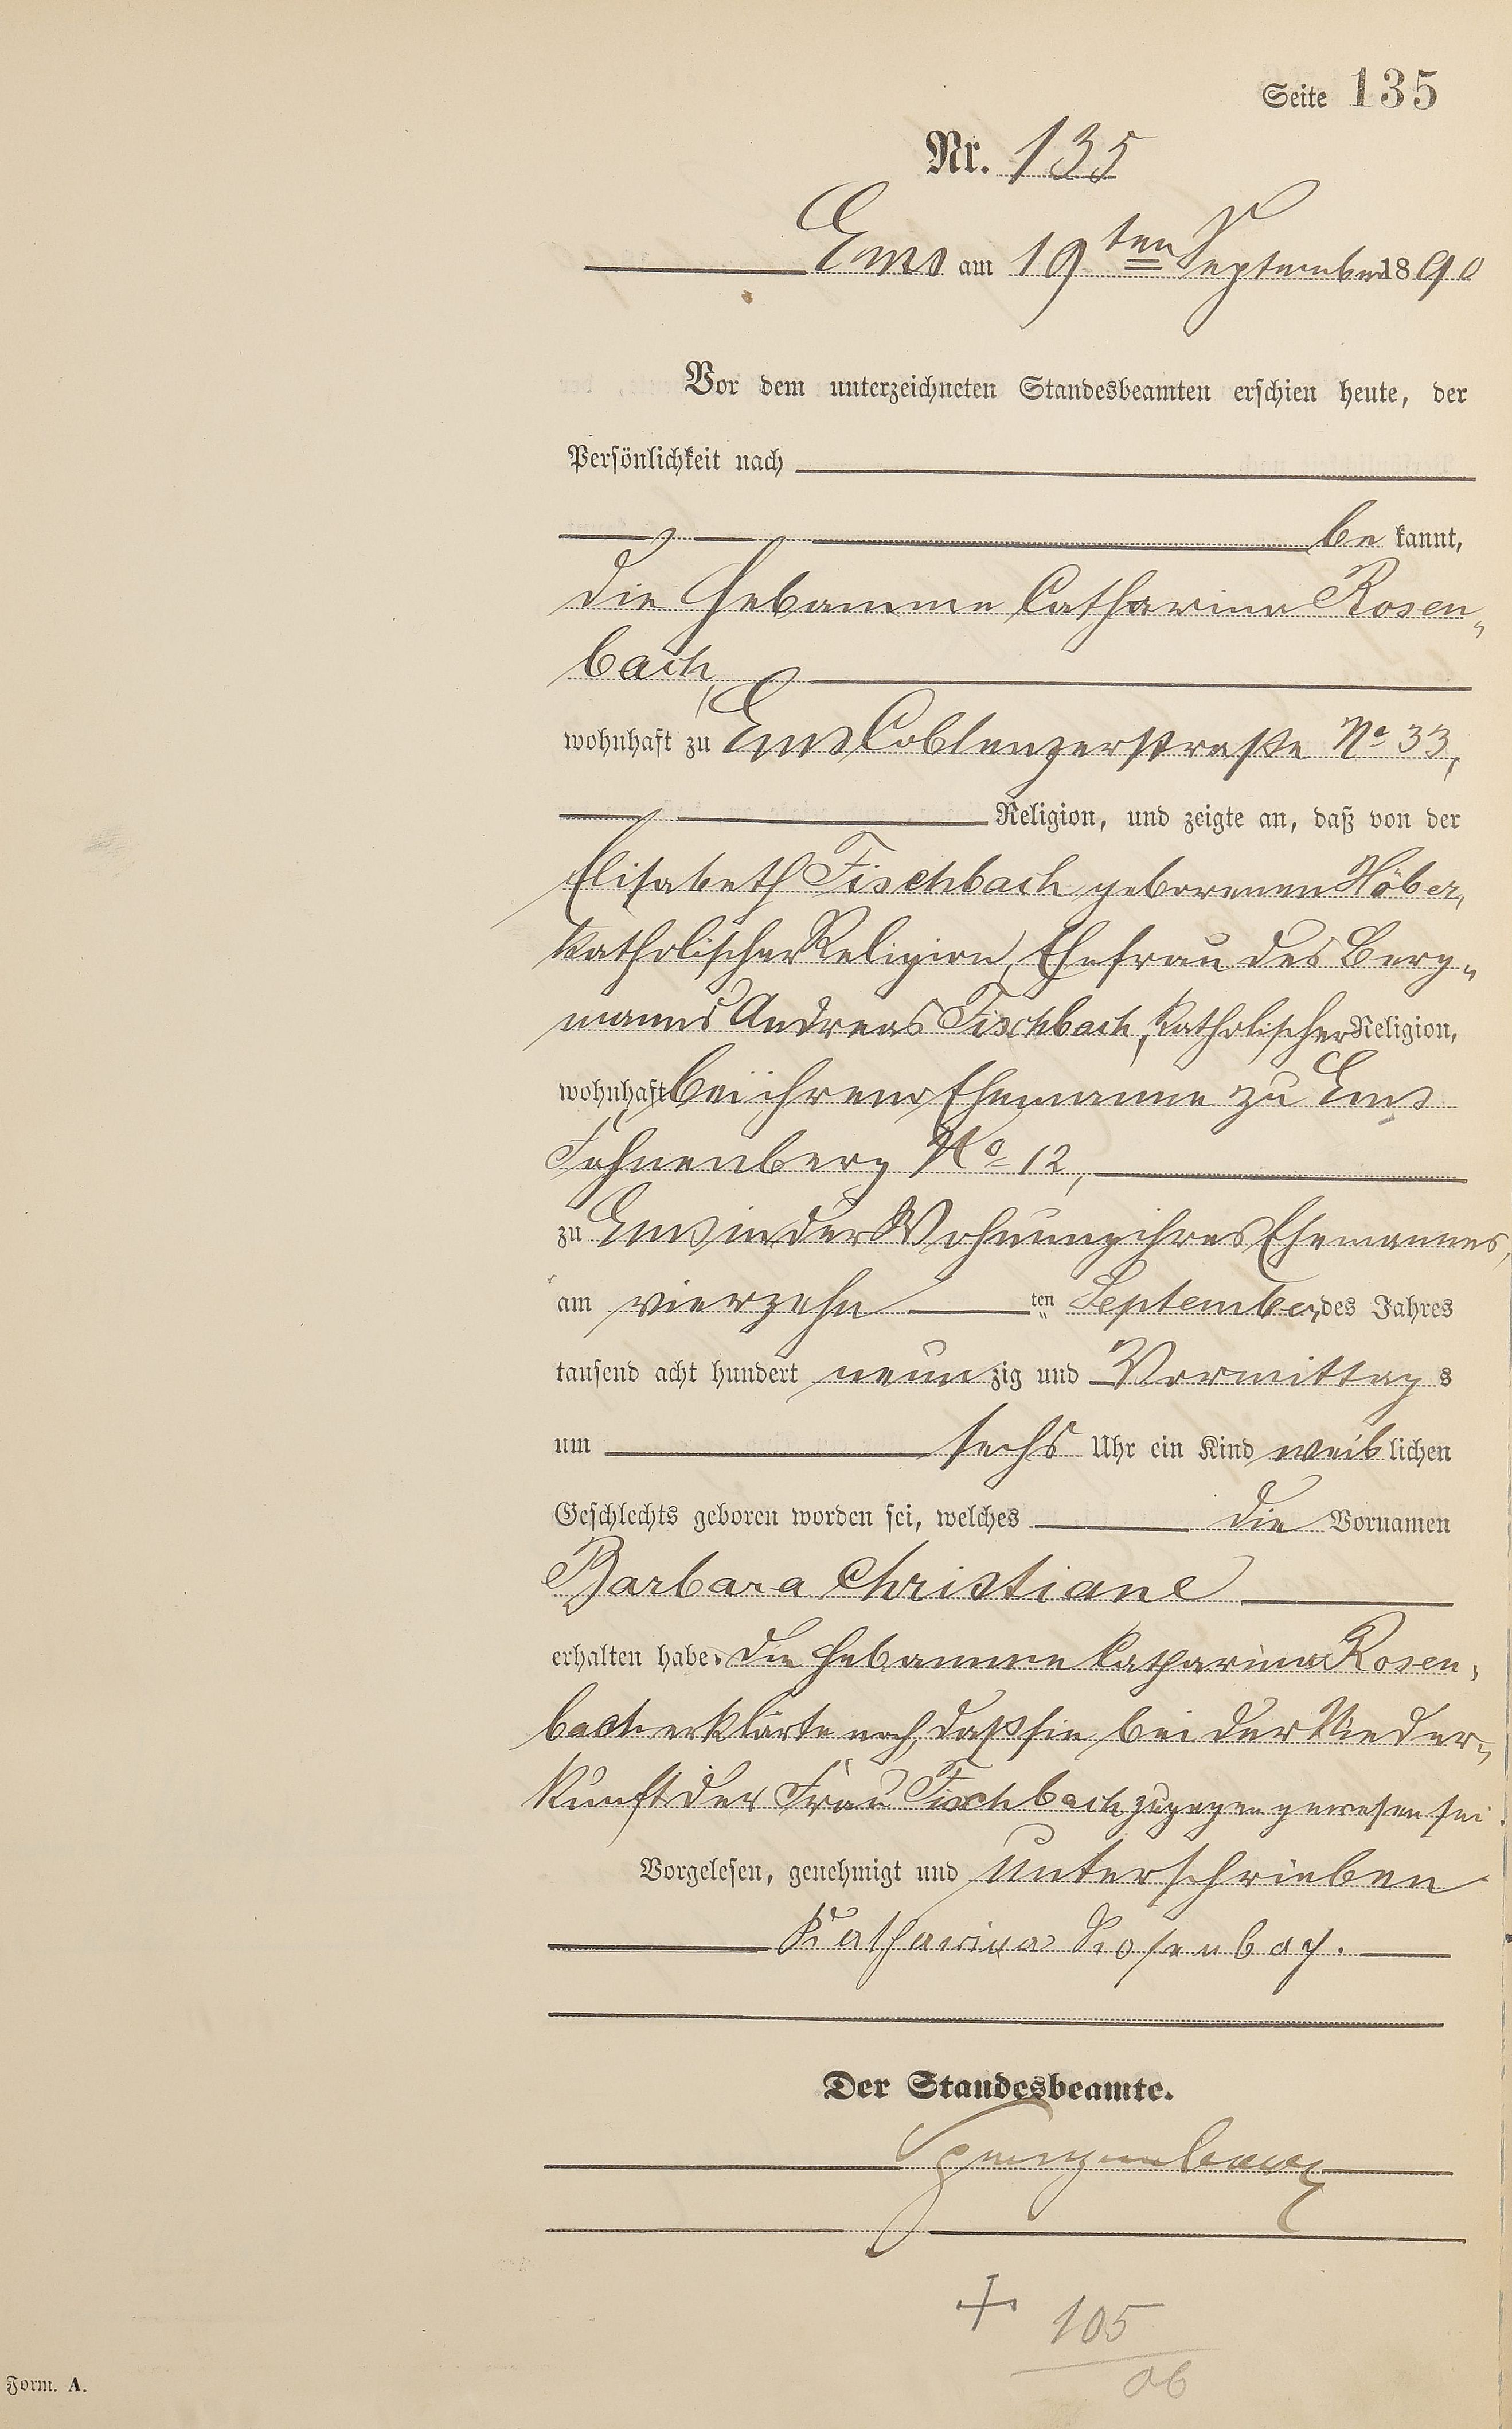 Seite 135
Nr. 135
Ems am 19ten September 1890
Vor dem unterzeichneten Standesbeamten erschien heute, der
Persönlichkeit nach
be kannt,
die Hebamme Catharina Rosen„
bach,
wohnhaft zu Ems Coblenzerstraße No 33,
Religion, und zeigte an, daß von der
Elisabeth Fischbach geborenen Höber,
katholischer Religion, Ehefrau des Berg„
manns Andreas Fischbach, katholischer Religion,
wohnhaft bei ihrem Ehemanne zu Ems
No 12,
zu Ems in der Wohnung ihres Ehemannes,
am vierzehn ten September des Jahres
tausend acht hundert neun zig und Vormittag s
um sechs Uhr ein Kind weib lichen
Geschlechts geboren worden sei, welches die Vornamen
Barbara Christiane
erhalten habe. Die Hebamme Catharina Rosen„
bach erklärte noch, daß sie bei der Nieder„
kunft der Frau Fischbach zugegen gewesen sei.
Vorgelesen, genehmigt und unterschrieben
Katharina Rosenbach.
Der Standesbeamte.
+ 105
06
Form. A.